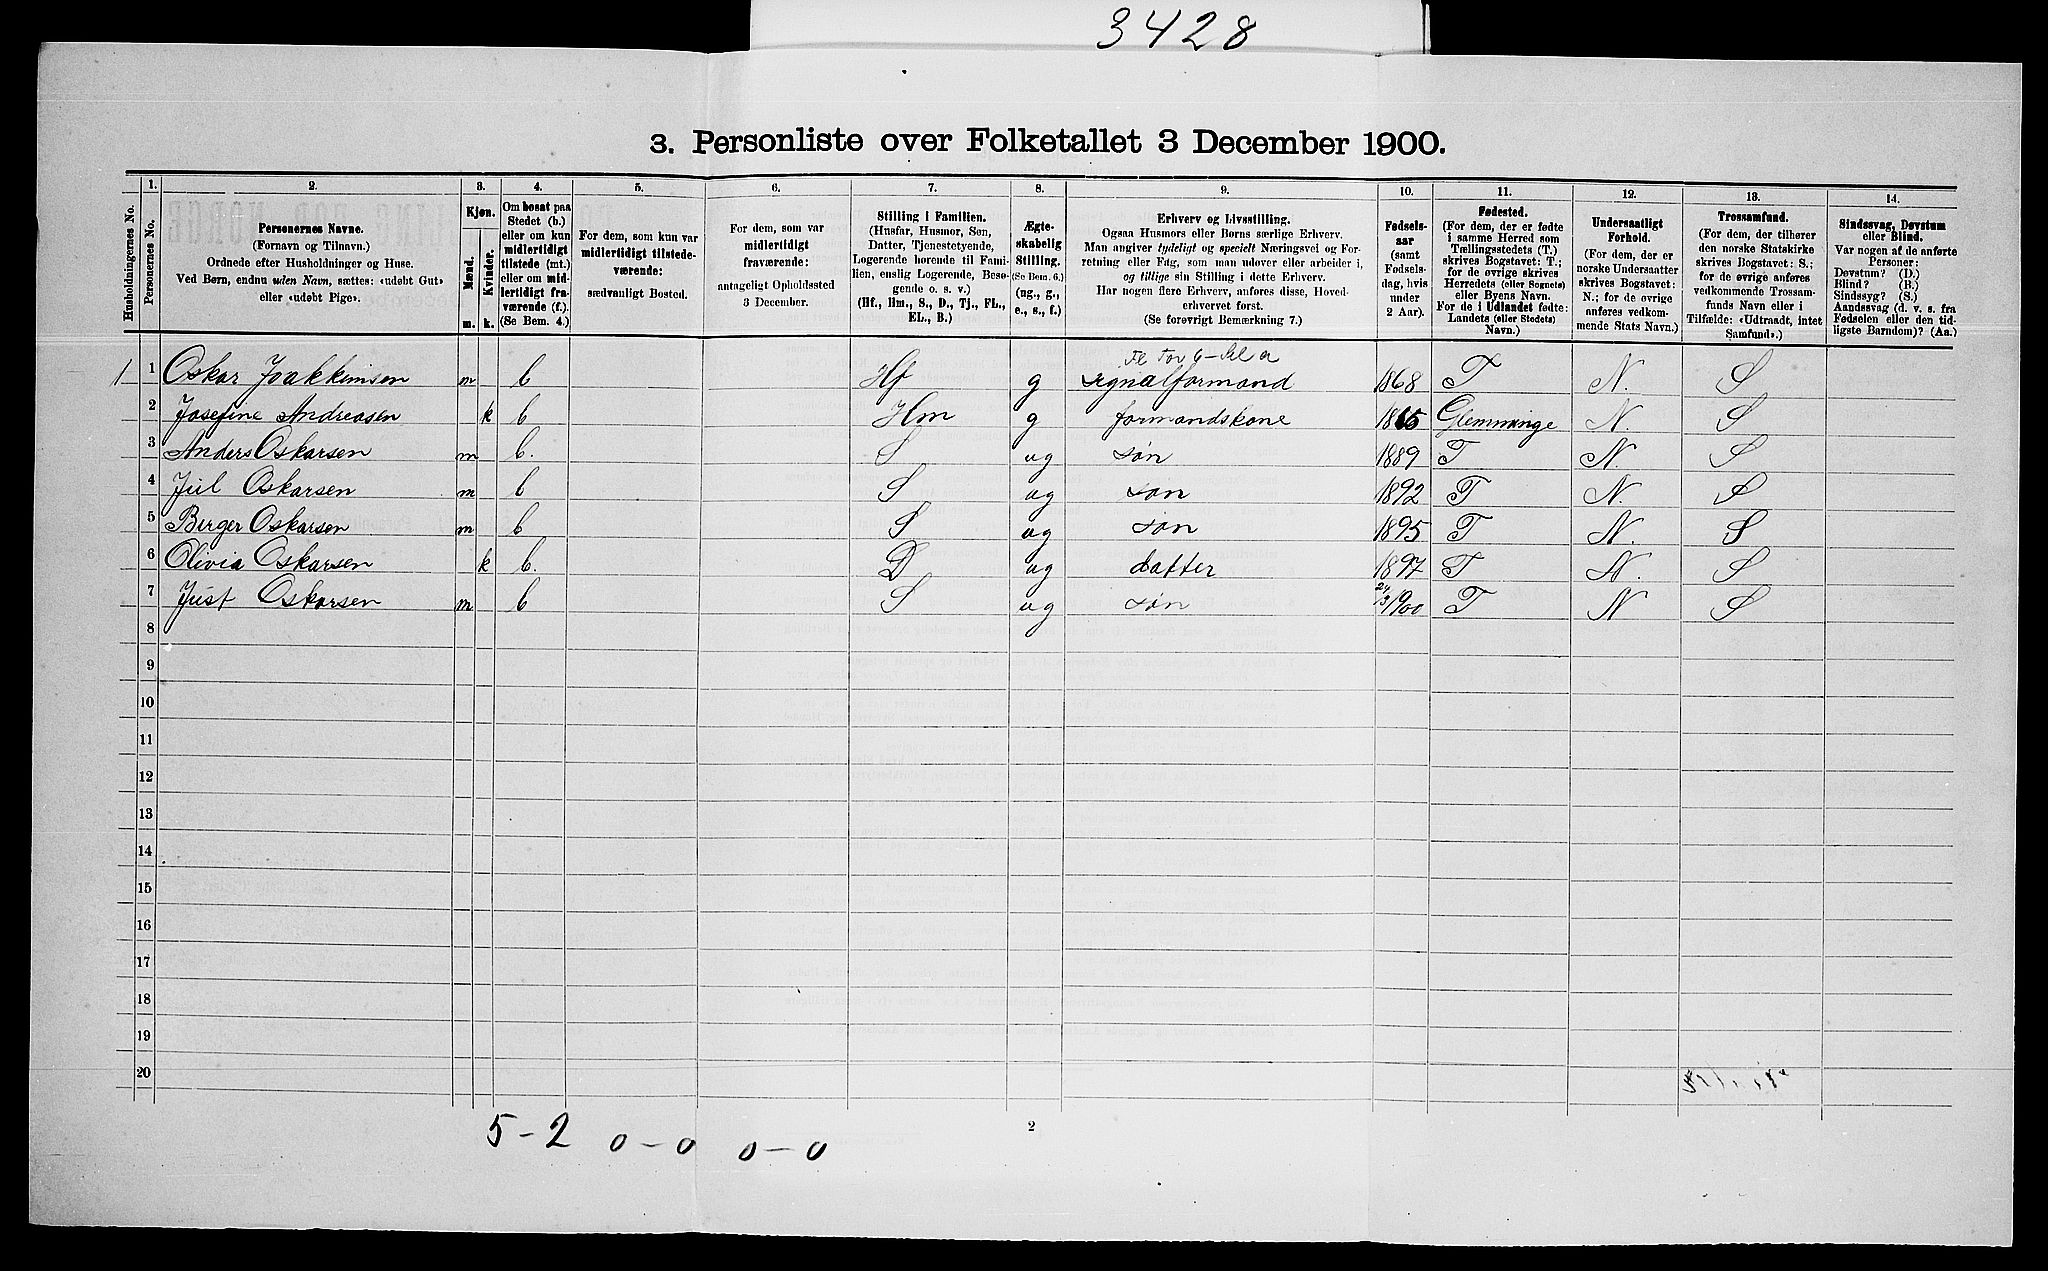 3428
3. Personliste over Folketallet 3 December 1900.
Husholdningernes No.
1. Personernes No.
2. Personernes Navne.
(Fornavn og Tilnavn.)
Ordnede efter Husholdninger og Huse.
Ved Børn, endnu uden Navn, sættes: «udøbt Gut»
eller «udøbt Pige».
3. Kjøn.
Mænd. m.
Kvinder. k.
4. Om bosat paa
Stedet (b.)
eller om kun
midlertidigt
tilstede (mt.)
eller om mid-
lertidigt fra-
værende (f.).
(Se Bem. 4.)
5. For dem, som kun var
midlertidigt tilstede-
værende:
sædvanligt Bosted.
6. For dem, som var
midlertidigt
fraværende:
antageligt Opholdssted
3 December.
7. Stilling i Familien.
(Husfar, Husmor, Søn,
Datter, Tjenestetyende,
Logerende hørende til Fami-
lien, enslig Logerende, Besø-
gende o. s. v.)
(Hf., Hm., S., D., Tj., FL.,
EL., B.)
8. Ægte-
skabelig
Stilling.
(Se Bem. 6.)
(ug., g.,
e., s., f.)
9. Erhverv og Livsstilling.
Ogsaa Husmors eller Børns særlige Erhverv.
Man angiver tydeligt og specielt Næringsvei og For-
retning eller Fag, som man udøver eller arbeider i,
og tillige sin Stilling i dette Erhverv.
Har nogen flere Erhverv, anføres disse, Hoved-
erhvervet først.
(Se forøvrigt Bemærkning 7.)
10. Fødsels-
aar
(samt
Fødsels-
dag, hvis
under
2 Aar).
11. Fødested.
(For dem, der er fødte
i samme Herred som
Tællingsstedets (T.)
skrives Bogstavet: T.;
for de øvrige skrives
Herredets (eller Sognets)
eller Byens Navn.
For de i Udlandet fødte:
Landets (eller Stedets)
Navn.)
12. Undersaatligt
Forhold.
(For dem, der er
norske Undersaatter
skrives Bogstavet:
N.; for de øvrige
anføres vedkom-
mende Stats Navn.)
13. Trossamfund.
(For dem, der tilhører
den norske Statskirke
skrives Bogstavet: S.;
for de øvrige anføres
vedkommende Trossam-
funds Navn eller i
Tilfælde: «Udtraadt, intet
Samfund».)
14. Sindssvag, Døvstum
eller Blind.
Var nogen af de anførte
Personer:
Døvstum? (D.)
Blind? (B.)
Sindssyg? (S.)
Aandssvag (d. v. s. fra
Fødselen eller den tid-
ligste Barndom)? (Aa.)
1 1 Oskar Joakkimsen m b Hf g signalformand 1868 T N. S
2 Josefine Andreasen k b Hm g formandskone 1865 Glemminge N. S
3 Anders Oskarsen m b. S ug søn 1889 T N. S
4 Jul Oskarsen m b S ug søn 1892 T N. S
5 Birger Oskarsen m b S ug søn 1895 T N. S
6 Olivia Oskarsen k b. D ug datter 1897 T N. S
7 Just Oskarsen m b S ug søn 21/3 1900 T N S
8
9
10
11
12
13
14
15
16
17
18
19
20
5-2 0-0 0-0
2